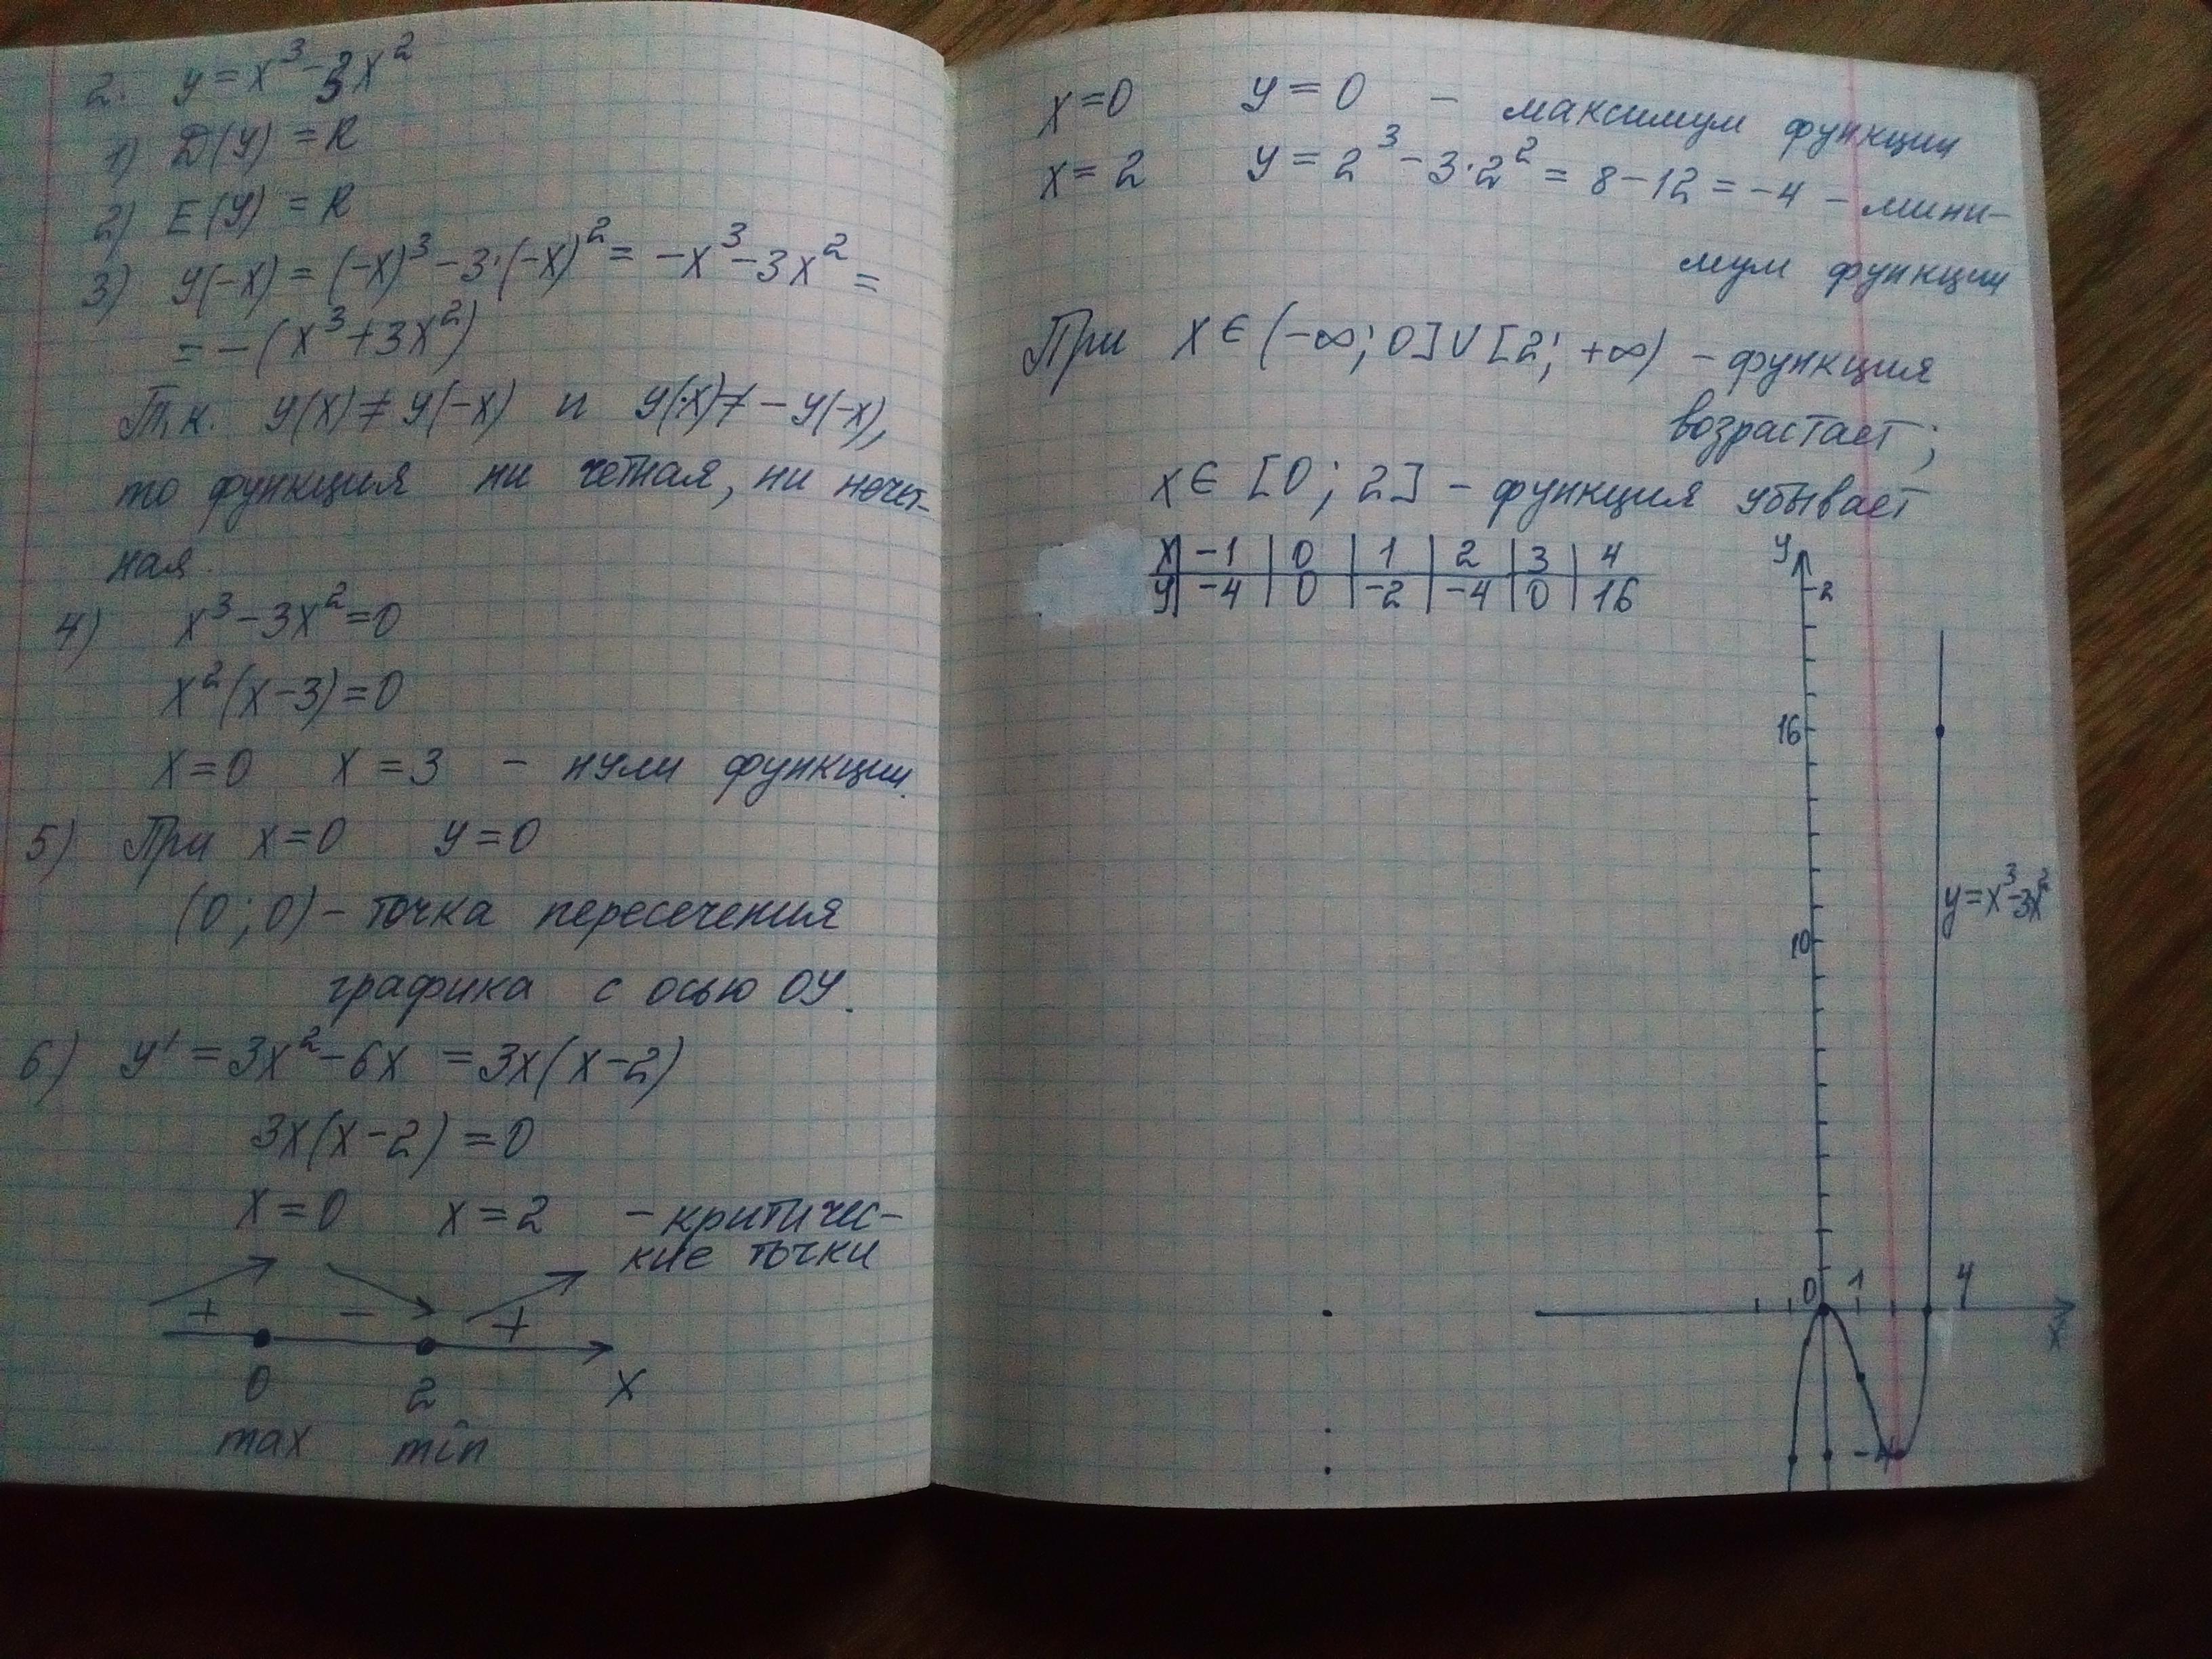 2. y = x³ - 3x²
1) D(y) = R
2) E(y) = R
3) y(-x) = (-x)³ - 3·(-x)² = -x³ - 3x² =
= -(x³ + 3x²)
Т.к. y(x) ≠ y(-x) и y(x) ≠ -y(-x),
то функция ни четная, ни нечет-
ная.
4) x³ - 3x² = 0
x²(x-3) = 0
x = 0 x = 3 - нули функции.
5) При x = 0 y = 0
(0; 0) - точка пересечения
графика с осью OY.
6) y' = 3x² - 6x = 3x(x-2)
3x(x-2) = 0
x = 0 x = 2 - критичес-
кие точки
+ - +
0 2 X
max min
x = 0 y = 0 - максимум функции
x = 2 y = 2³ - 3·2² = 8 - 12 = -4 - мини-
мум функции
При x ∈ (-∞; 0] ∪ [2; +∞) - функция
возрастает;
x ∈ [0; 2] - функция убывает
x | -1 | 0 | 1 | 2 | 3 | 4
y | -4 | 0 | -2 | -4 | 0 | 16
y
2
16
y = x³ - 3x²
10
0 1 4
x
-4